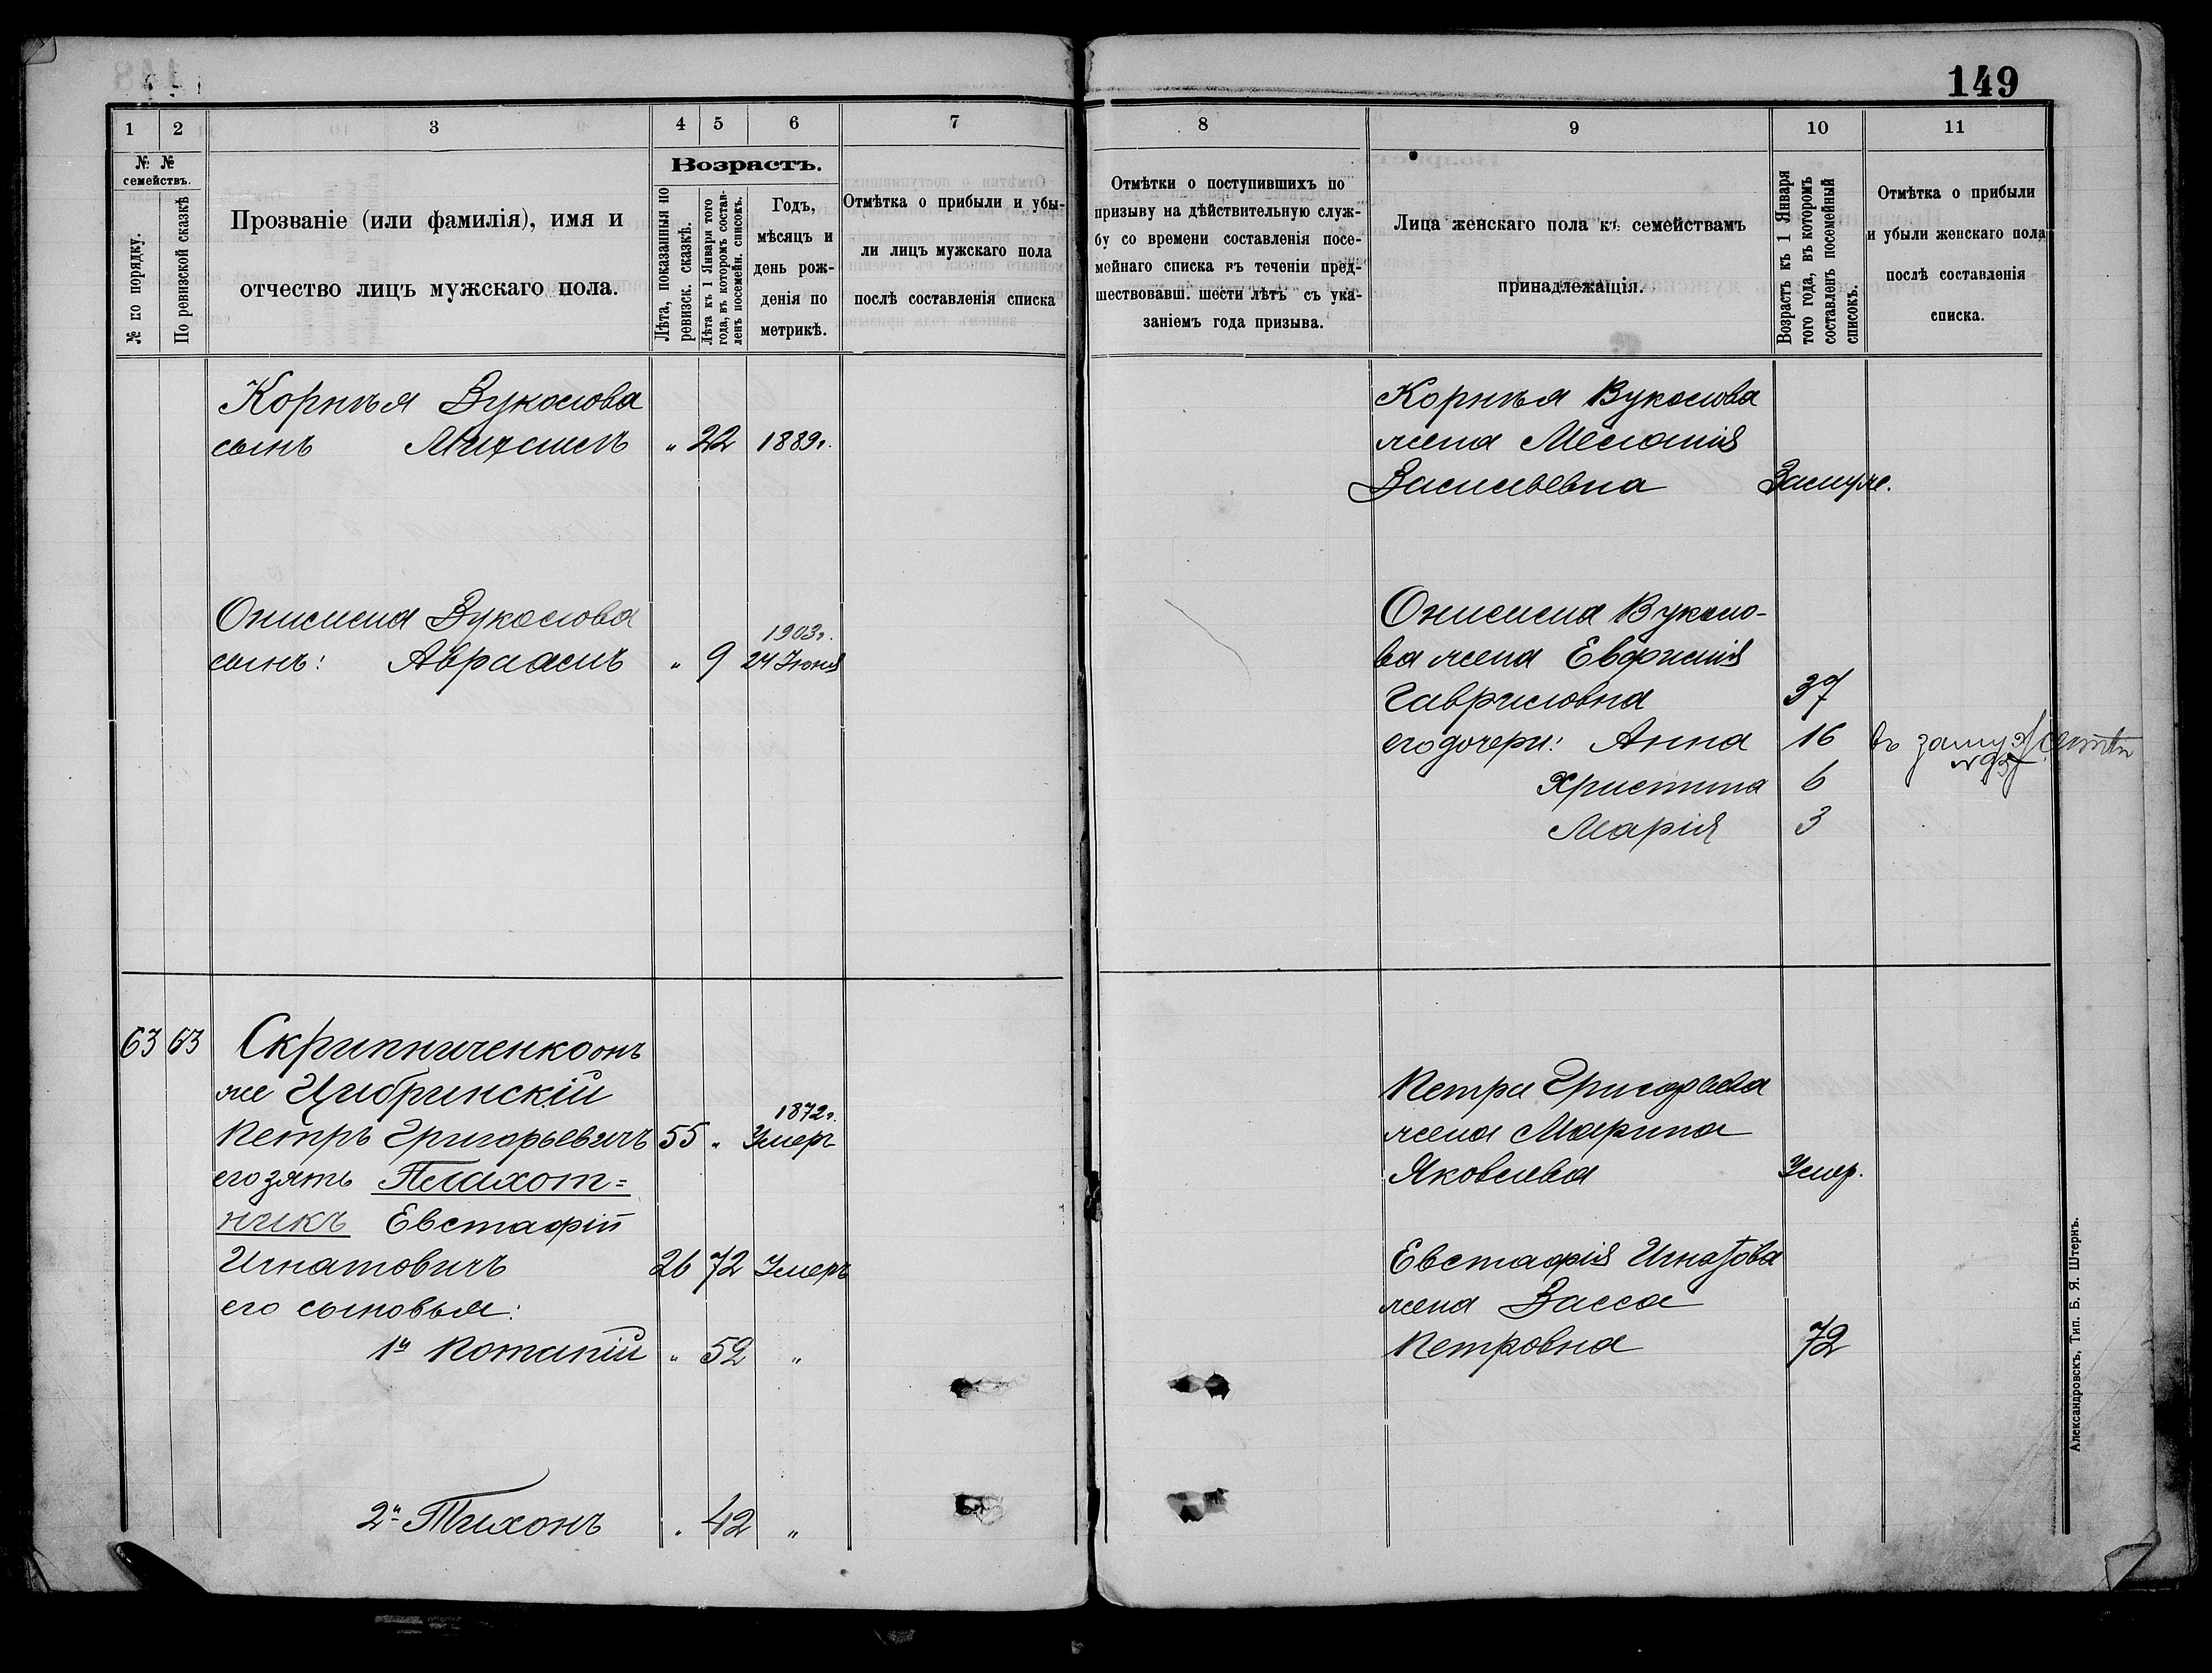 149
1 2 3 4 5 6 7
№ № семействъ.
№ по порядку.
По ревизской сказкѣ
Прозваніе (или фамилія), имя и
отчество лицъ мужскаго пола.
Возрастъ.
Лѣта, показанныя по
ревизск. сказкѣ.
Лѣта къ 1 Января того
года, въ которомъ состав-
ленъ посемейн. списокъ.
Годъ,
мѣсяцъ и
день рож-
денія по
метрикѣ.
Отмѣтка о прибыли и убы-
ли лицъ мужскаго пола
послѣ составленія списка
Корнѣя Вуколова
сынъ Михаилъ " 22 1889г.
Онисима Вуколова
1903г.
сынъ: Авраамъ " 9 24 Іюня
63 63 Скрипниченко онъ
же Цибринскій
1872г.
Петръ Григорьевичъ 55 " Умеръ
его зять Плахот=
никъ Евстафій
Игнатовичъ 26 72 Умеръ
его сыновья:
1й Потапій " 52 "
2й Тихонъ " 42 "
8 9 10 11
Отмѣтки о поступившихъ по
призыву на дѣйствительную служ-
бу со времени составленія посе-
мейнаго списка въ теченіи пред-
шествовавш. шести лѣтъ съ ука-
заніемъ года призыва.
Лица женскаго пола къ семействамъ
принадлежащія.
Возрастъ къ 1 Января
того года, въ которомъ
составленъ посемейный
списокъ.
Отмѣтка о прибыли
и убыли женскаго пола
послѣ составленія
списка.
Корнѣя Вуколова
жена Меланія
Васильевна Замуж.
Онисима Вуколо-
ва жена Евфимія
Гавриловна 37
его дочери: Анна 16 въ замуж
Христина 6
Марія 3
Петра Григорьева
жена Марина
Яковлева Умер.
Евстафія Игнатова
жена Васса
Петровна 72
Александровскъ, Тип. Б. Я. Штернъ.